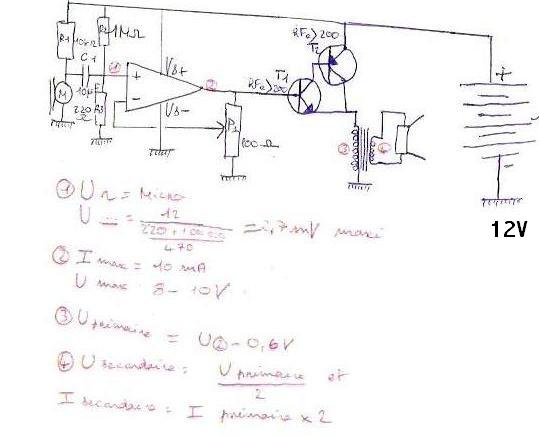 RFe>200
T2
R1
10kΩ
R2
1MΩ
C1
①
Vs+
②
RFe>200
T1
+
+
M
10µF
220
Ω
R3
-
Vs-
P1
100 Ω
③
④
-
12V
① U ~ = Micro
U = 12 = 2,7 mV maxi
220 + 1000000
470
② I max = 10 mA
U max 8 - 10V
③ U primaire = U② - 0,6V
④ U secondaire = U primaire et
2
I secondaire = I primaire x 2